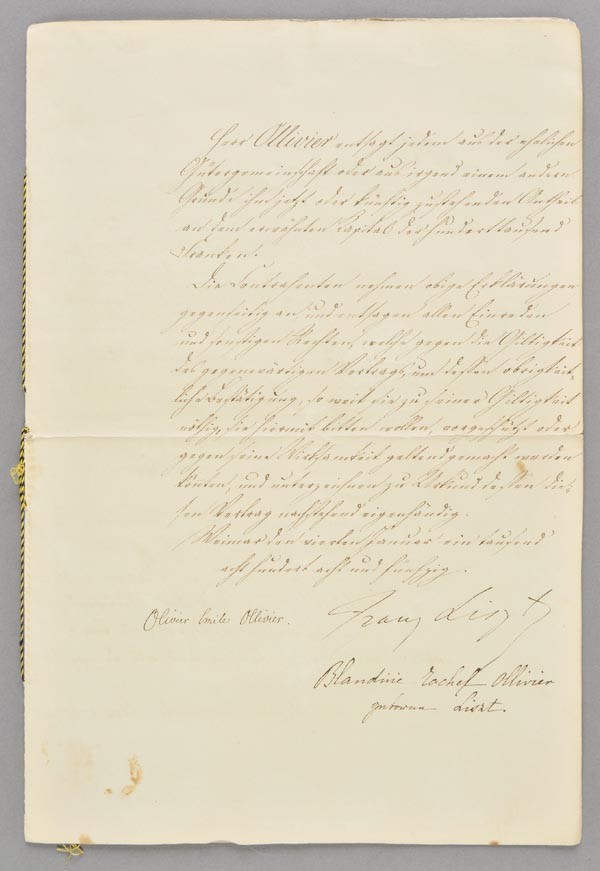 Herr Ollivier entsagt jedem aus der ehelichen
Gütergemeinschaft oder aus irgend einem andern
Grunde ihm jetzt oder künftig zustehenden Antheil
an dem erwähnten Kapital der hunderttausend
Franken.
Die Contrahenten nehmen obige Erklärungen
gegenseitig an und entsagen allen Einreden
und sonstigen Rechten, welche gegen die Giltigkeit
des gegenwärtigen Vertrags, um dessen obrigkeit-
liche Bestätigung, so weit sie zu seiner Giltigkeit
nöthig, sie hiermit bitten wollen, vorgeschützt oder
gegen seine Wirksamkeit geltend gemacht werden
könten, und unterzeichnen zu Urkund dessen die-
sen Vertrag nachstehend eigenhändig.
Weimar den vierten Januar ein tausend
acht hundert acht und fünfzig.
Olivier Emile Ollivier.
Franz Liszt
Blandine Rachel Ollivier
geborene Liszt.